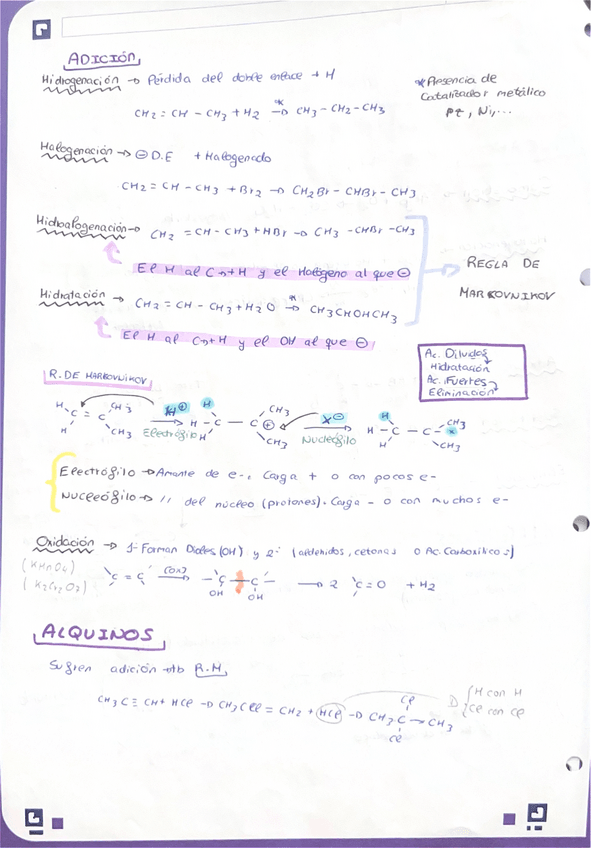 ADICIÓN
Hidrogenación → Pérdida del doble enlace + H
*Presencia de
Catalizador metálico
Pt, Ni,...
CH2 = CH - CH3 + H2 →* CH3 - CH2 - CH3
Halogenación → ⊖ D.E + Halogenado
CH2 = CH - CH3 + Br2 → CH2Br - CHBr - CH3
Hidroalogenación → CH2 = CH - CH3 + HBr → CH3 - CHBr - CH3
El H al C → +H y el Halógeno al que ⊖
REGLA DE
MARKOVNIKOV
Hidratación → CH2 = CH - CH3 + H2O →* CH3CHOHCH3
El H al C → +H y el OH al que ⊖
Ac. Diluidos
Hidratación
Ac. Fuertes
Eliminación
R. DE MARKOVNIKOV
H C = C CH3 H CH3 → H⊕ H - C — C⊕ CH3 CH3 → X⊖ H - C - C - X CH3 CH3
Electrófilo
Nucleófilo
Electrófilo → Amante de e-, Carga + o con pocos e-
Nucleófilo → // del núcleo (protones). Carga - o con muchos e-
Oxidación → 1º Forman Dioles (OH) y 2º (aldehidos, cetonas o Ac. Carboxílicos)
(KMnO4)
(K2Cr2O7)
C = C → - C - C - → 2 C = O + H2
OH OH
ALQUINOS
Sufren adición → tb R.M.
CH3C ≡ CH + HCl → CH3CCl = CH2 + HCl → CH3 - C - CH3
Cl
Cl
H con H
Cl con Cl